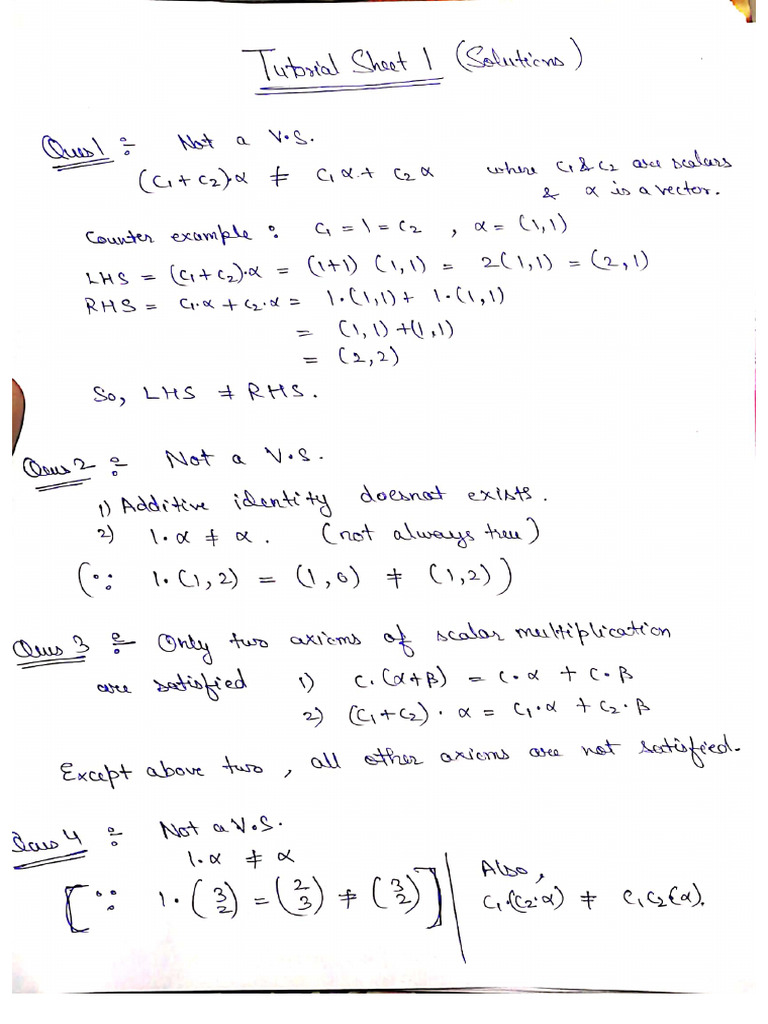 Tutorial Sheet 1 (Solutions)
Ques 1 :- Not a V.S.
(C₁ + C₂)·α ≠ C₁α + C₂α where C₁ & C₂ are scalars
& α is a vector.
Counter example : C₁ = 1 = C₂ , α = (1,1)
LHS = (C₁+C₂)·α = (1+1) (1,1) = 2(1,1) = (2,1)
RHS = C₁·α + C₂·α = 1·(1,1) + 1·(1,1)
= (1,1) + (1,1)
= (2,2)
So, LHS ≠ RHS.
Ques 2 :- Not a V.S.
1) Additive identity doesnot exists.
2) 1·α ≠ α. (not always true)
(∵ 1·(1,2) = (1,0) ≠ (1,2))
Ques 3 :- Only two axioms of scalar multiplication
are satisfied 1) C·(α+β) = C·α + C·β
2) (C₁+C₂)·α = C₁·α + C₂·β
Except above two, all other axioms are not satisfied.
Ques 4 :- Not a V.S.
1·α ≠ α
[∵ 1·(3 2) = (2 3) ≠ (3 2)]
Also,
C₁·(C₂·α) ≠ C₁C₂(α).